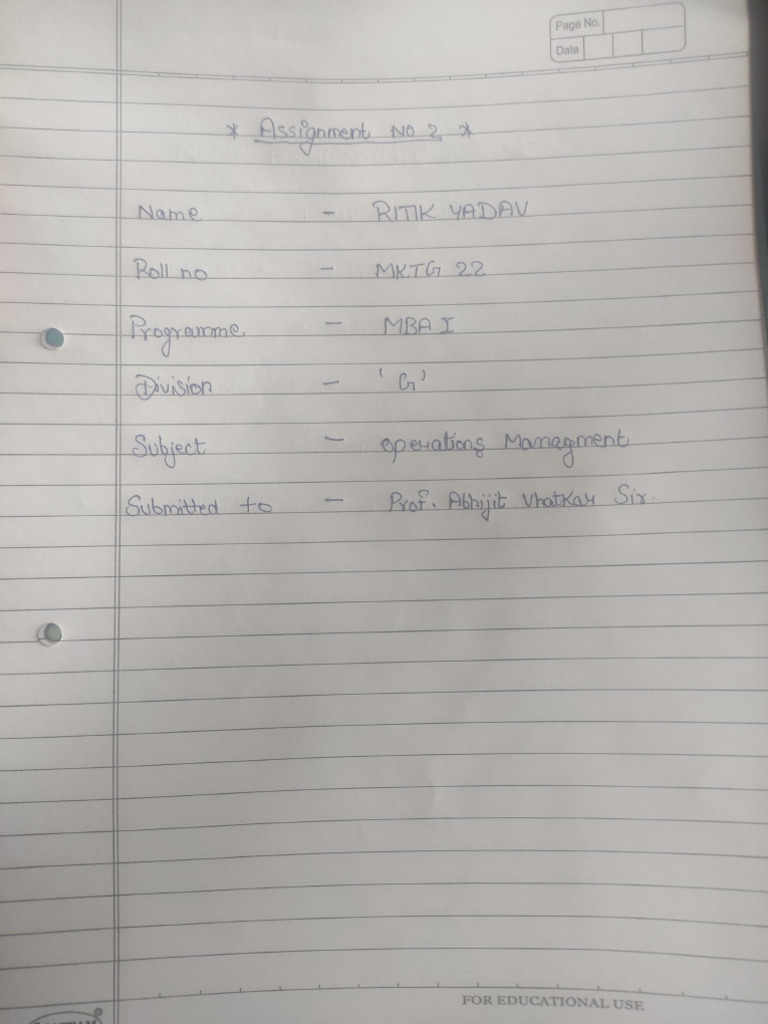 Page No.
Date
* Assignment No 2 *
Name - RITIK YADAV
Roll no - MKTG 22
Programme - MBA I
Division - 'G'
Subject - Operations Managment
Submitted to - Prof. Abhijit Vhatkar Sir.
FOR EDUCATIONAL USE